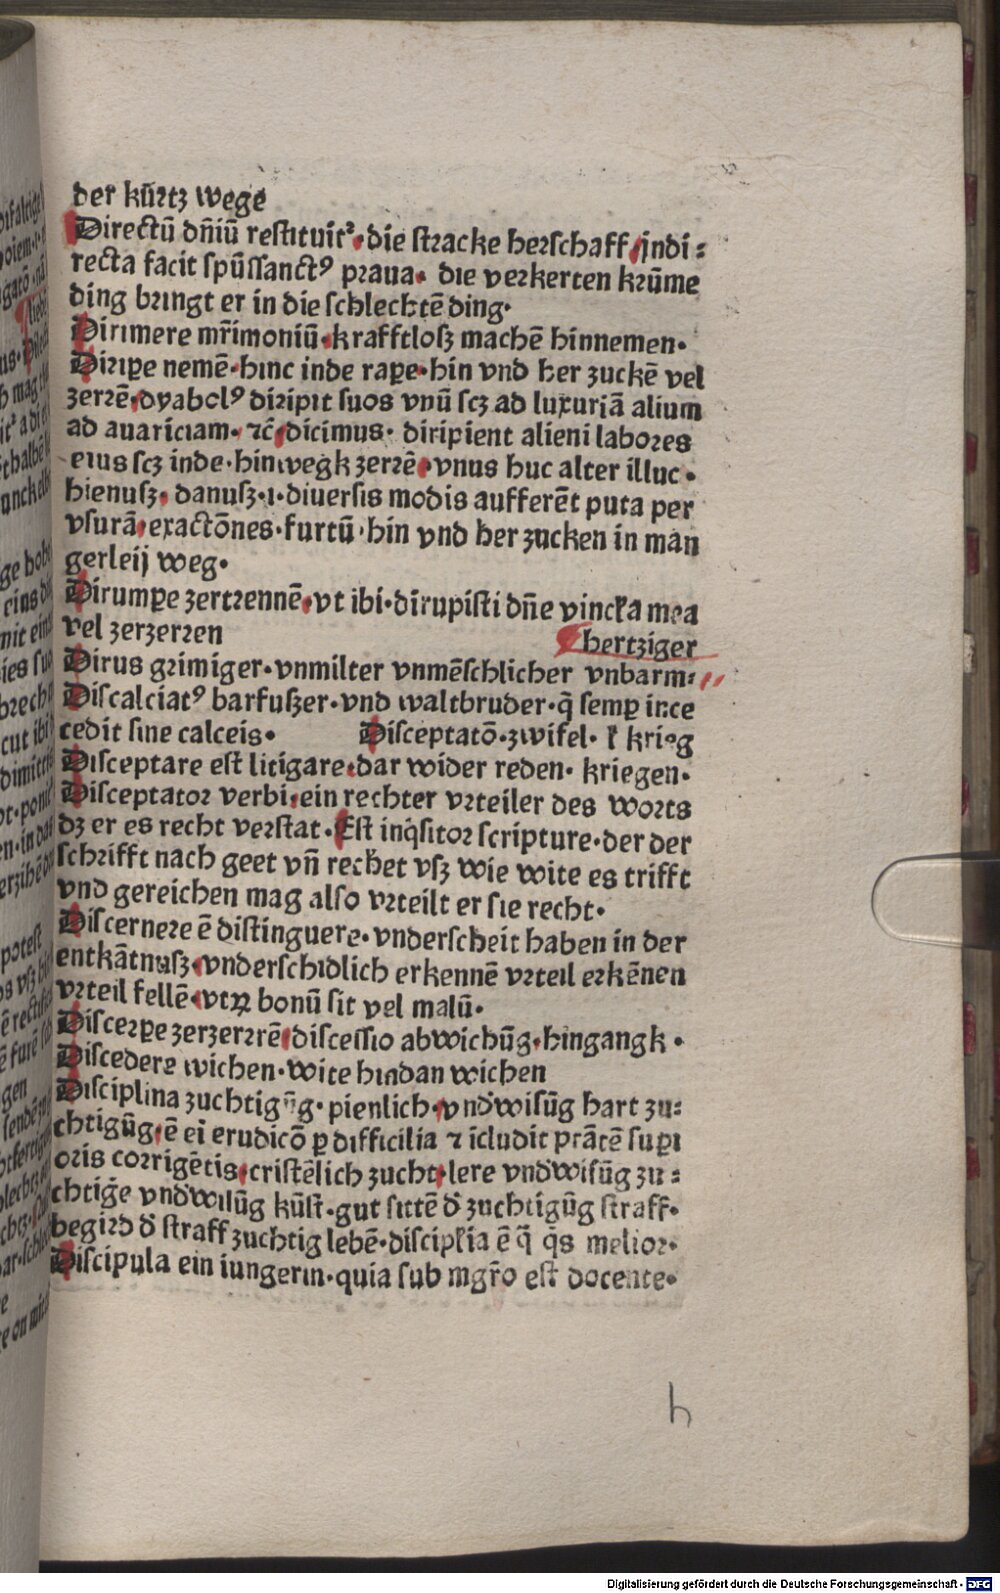 der kűrtz wege
Directū dn̄iū restituit᷑·die stracke herschaff·jndi⸗
recta facit spūssanctꝰ praua· die verkerten krūme
ding bringt er in die schlechtē ding·
Dirimere mr̄imoniū·krafftlosz machē hinnemen·
Diripe nemē·hinc inde rape·hin vnd her zuckē vel
zerrē·dyabolꝰ diripit suos vnū scz ad luxuriā alium
ad auariciam· ⁊c̄·dicimus· diripient alieni labores
eius scz inde·hinwegk zerrē·vnus huc alter illuc·
hienusz· danusz·i·diuersis modis aufferēt puta per
vsurā·exactōnes·furtū·hin vnd her zucken in man
gerleij weg·
Dirumpe zertrennē·vt ibi·dirupisti dn̄e vincƚa mea
vel zerzerren
hertziger
Dirus grimiger·vnmilter vnmēschlicher vnbarm⸗
Discalciatꝰ barfuszer·vnd waltbruder·q̄ semp ince
cedit sine calceis·
Disceptatō·zwifel· ƚ krieg
Disceptare est litigare·dar wider reden· kriegen·
Disceptator verbi·ein rechter vrteiler des worts
dz er es recht verstat·Est inq̇sitor scripture·der der
schrifft nach geet vn̄ rechet vsz wie wite es trifft
vnd gereichen mag also vrteilt er sie recht·
Discernere ē distinguere·vnderscheit haben in der
entkātnusz·vnderschidlich erkennē vrteil erkēnen
vrteil fellē·vtꝝ bonū sit vel malū·
Discerpe zerzerrrē·discessio abwichūg·hingangk·
Discedere wichen·wite hindan wichen
Disciplina zuchtigūg·pienlich·vndwisūg hart zu⸗
chtigūg·ē ei erudicō ꝑ difficilia ⁊ īcludit prātē supi
oris corrigētis·cristēlich zucht·lere vndwisūg zu⸗
chtigē vndwisūg kūst·gut sittē d̄ zuchtigūg straff·
begird d̄ straff zuchtig lebē·discipƚia ē q̄ q̇s melior·
Discipula ein iungerin·quia sub mgr̄o est docente·
h
Digitalisierung gefördert durch die Deutsche Forschungsgemeinschaft - DFG